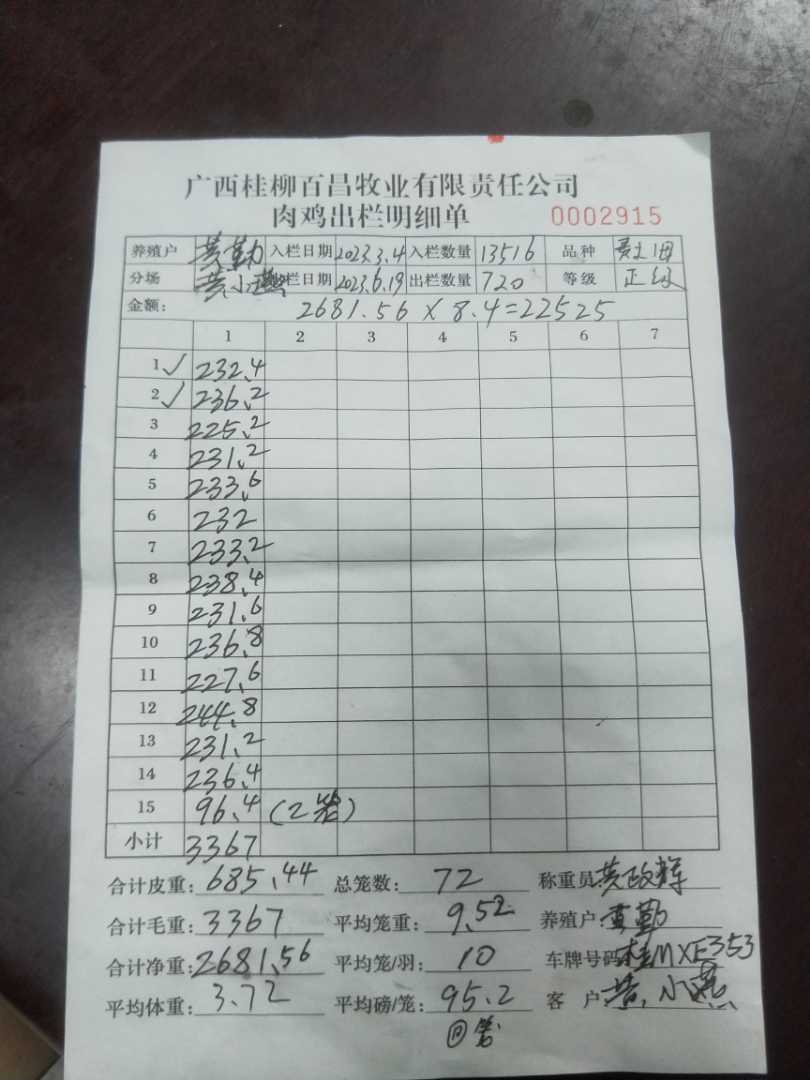 广西桂柳百昌牧业有限责任公司
肉鸡出栏明细单 0002915
养殖户 黄勤 入栏日期 2023.3.4 入栏数量 13516 品种
分场 黄小燕 出栏日期 2023.6.19 出栏数量 720 等级 正级
金额: 2681.56 X 8.4=22525
1 2 3 4 5 6 7
1 ✓ 232.4
2 ✓ 236.2
3 225.2
4 231.2
5 233.6
6 232
7 233.2
8 238.4
9 231.6
10 236.8
11 227.6
12 244.8
13 231.2
14 236.4
15 96.4 (2笼)
小计 3367
合计皮重: 685.44 总笼数: 72 称重员: 黄政辉
合计毛重: 3367 平均笼重: 9.52 养殖户: 黄勤
合计净重: 2681.56 平均笼/羽: 10 车牌号码: 桂MXF353
平均体重: 3.72 平均磅/笼: 95.2 客户: 黄小燕